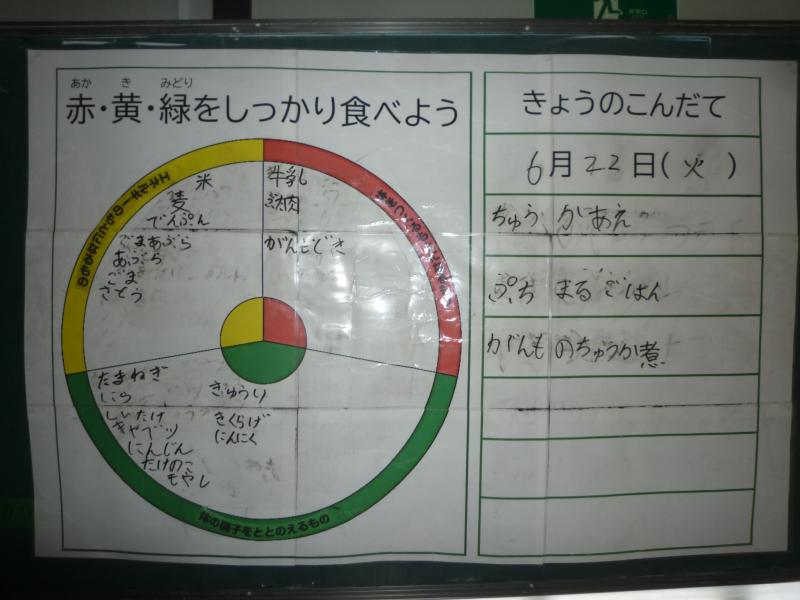 あか き みどり
赤・黄・緑をしっかり食べよう
エネルギーのもとになるもの
米
麦
でんぷん
ごまあぶら
あぶら
ごま
さとう
牛乳
豚肉
がんもどき
たまねぎ
にら
しいたけ
キャベツ
にんじん
たけのこ
もやし
きゅうり
きくらげ
にんにく
体の調子をととのえるもの
きょうのこんだて
6月22日(火)
ちゅうかあえ
ぷちまるごはん
がんものちゅうか煮
非常口